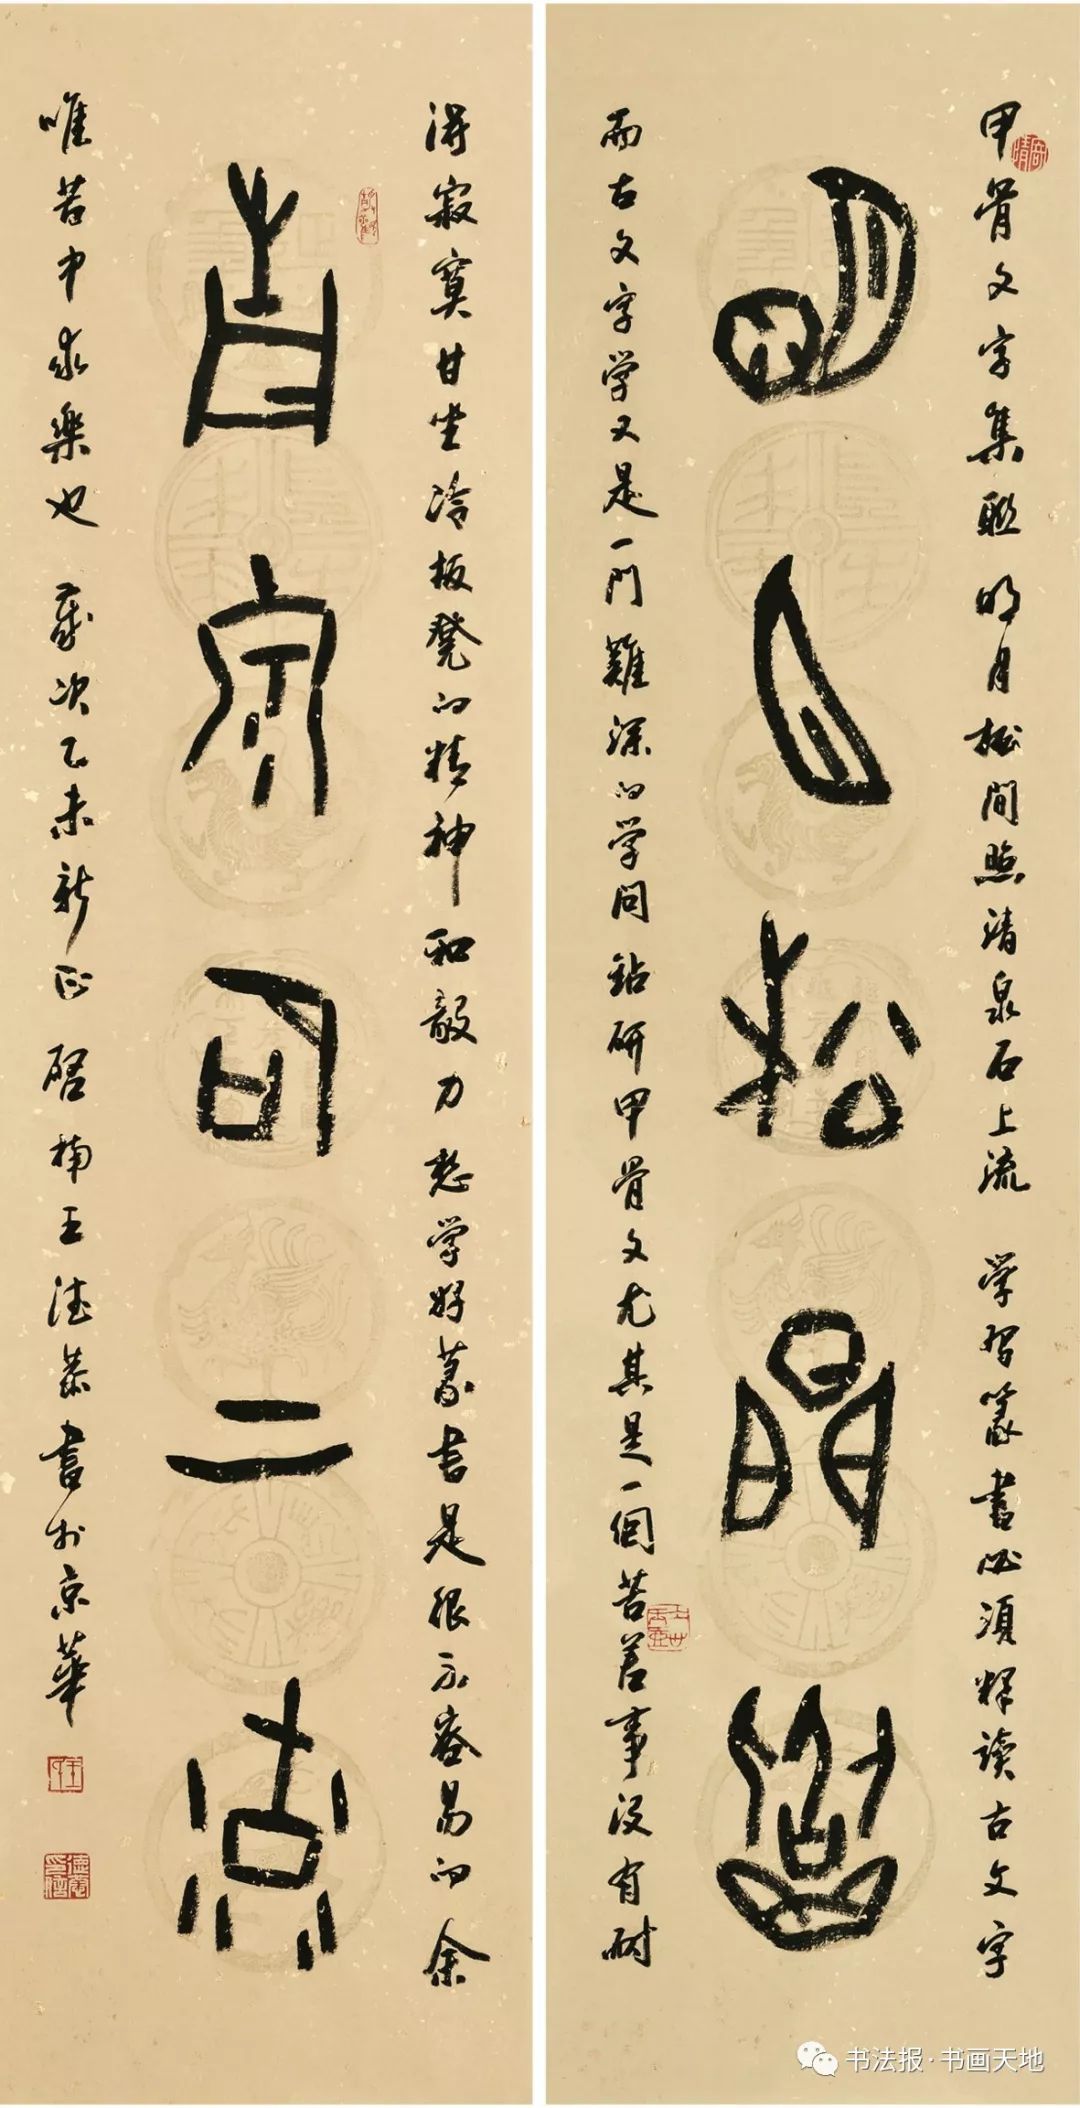 甲骨文字集聯 明月松間照清泉石上流 学習篆書必須釋读古文字
明月松間照
而古文字学又是一門難深的学问钻研甲骨文尤其是一個苦差事没有耐
得寂寞甘坐冷板凳的精神和毅力想学好篆書是很不容易的余
清泉石上流
唯苦中求樂也 歲次乙未新正 啓楠王德恭書於京華
书法报·书画天地